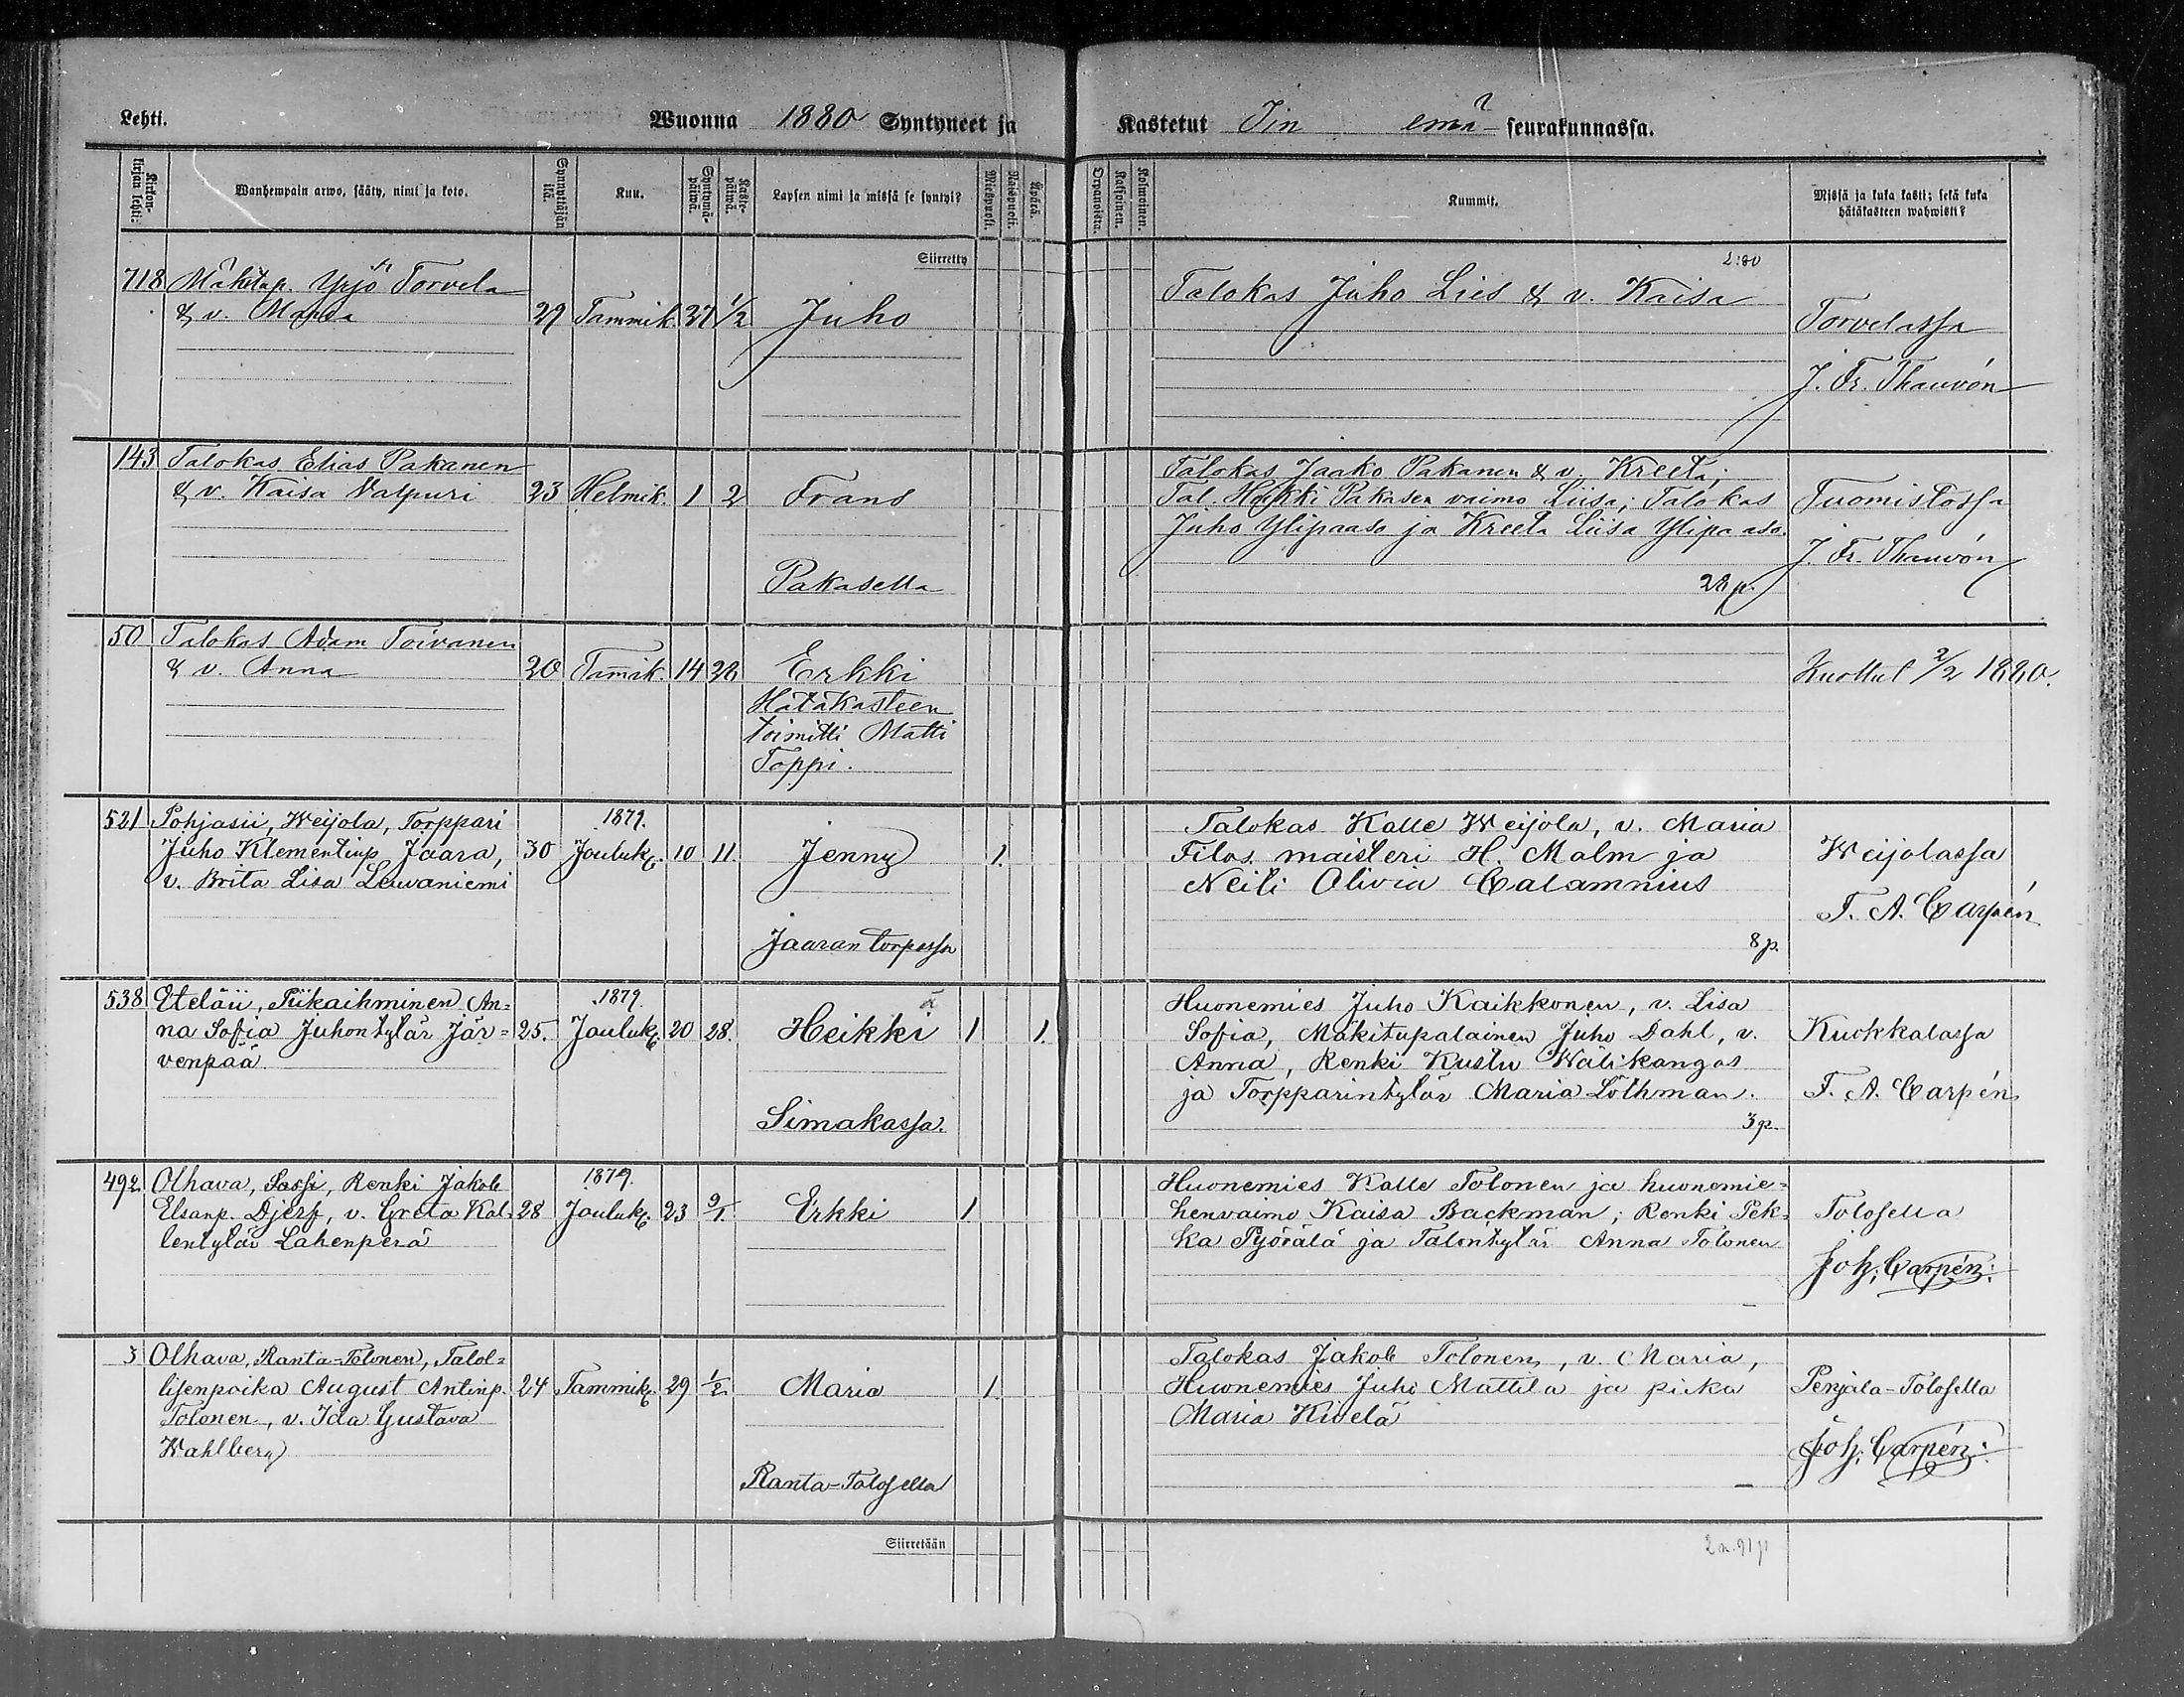 Lehti.
Wuonna 1880 Syntyneet ja
Kastetut Iin emä- seurakunnassa.
Kirkon-kirjan lehti:
Wanhempain arwo, sääty, nimi ja koto.
Synnyttäjän ikä.
Kuu.
Syntymä-päiwä.
Kaste-päiwä.
Lapsen nimi ja missä se syntyi?
Miespuoli.
Naispuoli.
Äpärä.
Orpanoista.
Kaksoinen.
Kolmoinen.
Kummit.
Missä ja kuka kasti; sekä kuka
hätäkasteen wahwisti?
Siirretty
2:80
718 Mäkitup. Yrjö Torvela
& v. Maria 29 Tammik. 31 1/2 Juho
Talokas Juho Lies & v. Kaisa
Torvelassa
J. Fr. Thauvón
143 Talokas Elias Pakanen
& v. Kaisa Valpuri 23 Helmik. 1 2 Frans
Pakasella
Talokas Jaako Pakanen & v. Kreeta;
Tal. Heikki Pakasen vaimo Liisa; Talokas
Juho Ylipaaso ja Kreeta Liisa Ylipaaso.
28 p.
Tuomistossa
J. Fr. Thauvón
50 Talokas Adam Toivanen
& v. Anna 20 Tammik. 14 28 Erkki
Hätäkasteen
toimitti Matti
Toppi.
Kuollut 2/2 1880.
521 Pohjasii, Weijola, Torppari 1879.
Juho Klementinp. Jaara, 30 Jouluk. 10 11. Jenny 1.
v. Brita Lisa Leuvaniemi
Jaaran torpassa
Talokas Kalle Weijola, v. Maria
Filos. maisteri H. Malm ja
Neiti Olivia Calamnius
8 p.
Weijolassa
F. A. Carpén
538 Eteläii, Piikaihminen An= 1879.
na Sofia Juhontytär Jär= 25. Jouluk. 20 28. Heikki ä 1 1.
venpää.
Simakassa.
Huonemies Juho Kaikkonen, v. Lisa
Sofia, Mäkitupalainen Juho Dahl, v.
Anna, Renki Kustu Wälikangas
ja Torpparintytär Maria Löthman.
3 p.
Kuokkalassa
F. A. Carpén
492 Olhava, Sassi, Renki Jakob 1879.
Elsanp. Djerf, v. Greta Kal= 28 Jouluk. 23 9/1. Erkki 1.
lentytär Lahenperä
Huonemies Kalle Tolonen ja huonemie=
henvaimo Kaisa Backman; Renki Pek=
ka Pyörälä ja Talontytär Anna Tolonen
Tolosella
Joh. Carpén.
3 Olhava, Ranta-Tolonen, Talol=
lisenpoika August Antinp. 24 Tammik. 29 1/2. Maria 1.
Tolonen, v. Ida Gustava
Wahlberg
Ranta-Tolosella
Talokas Jakob Tolonen, v. Maria,
Huonemies Juho Mattila ja piika
Maria Kivelä
Perjala-Tolosella
Joh. Carpén.
Siirretään
2 m. 91 p